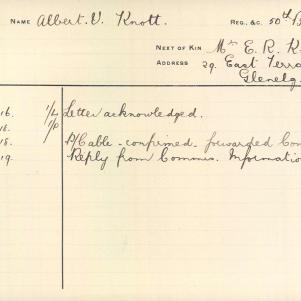 NAME Albert. V. Knott. REG., &C. 50th B
NEXT OF KIN Mrs E. R. K
ADDRESS 29. East Terra
Glenelg.
16. 1/4 Letter acknowledged.
16. 1/0
18. P/Cable - confirmed. forwarded Com
19 Reply from Commis. Information